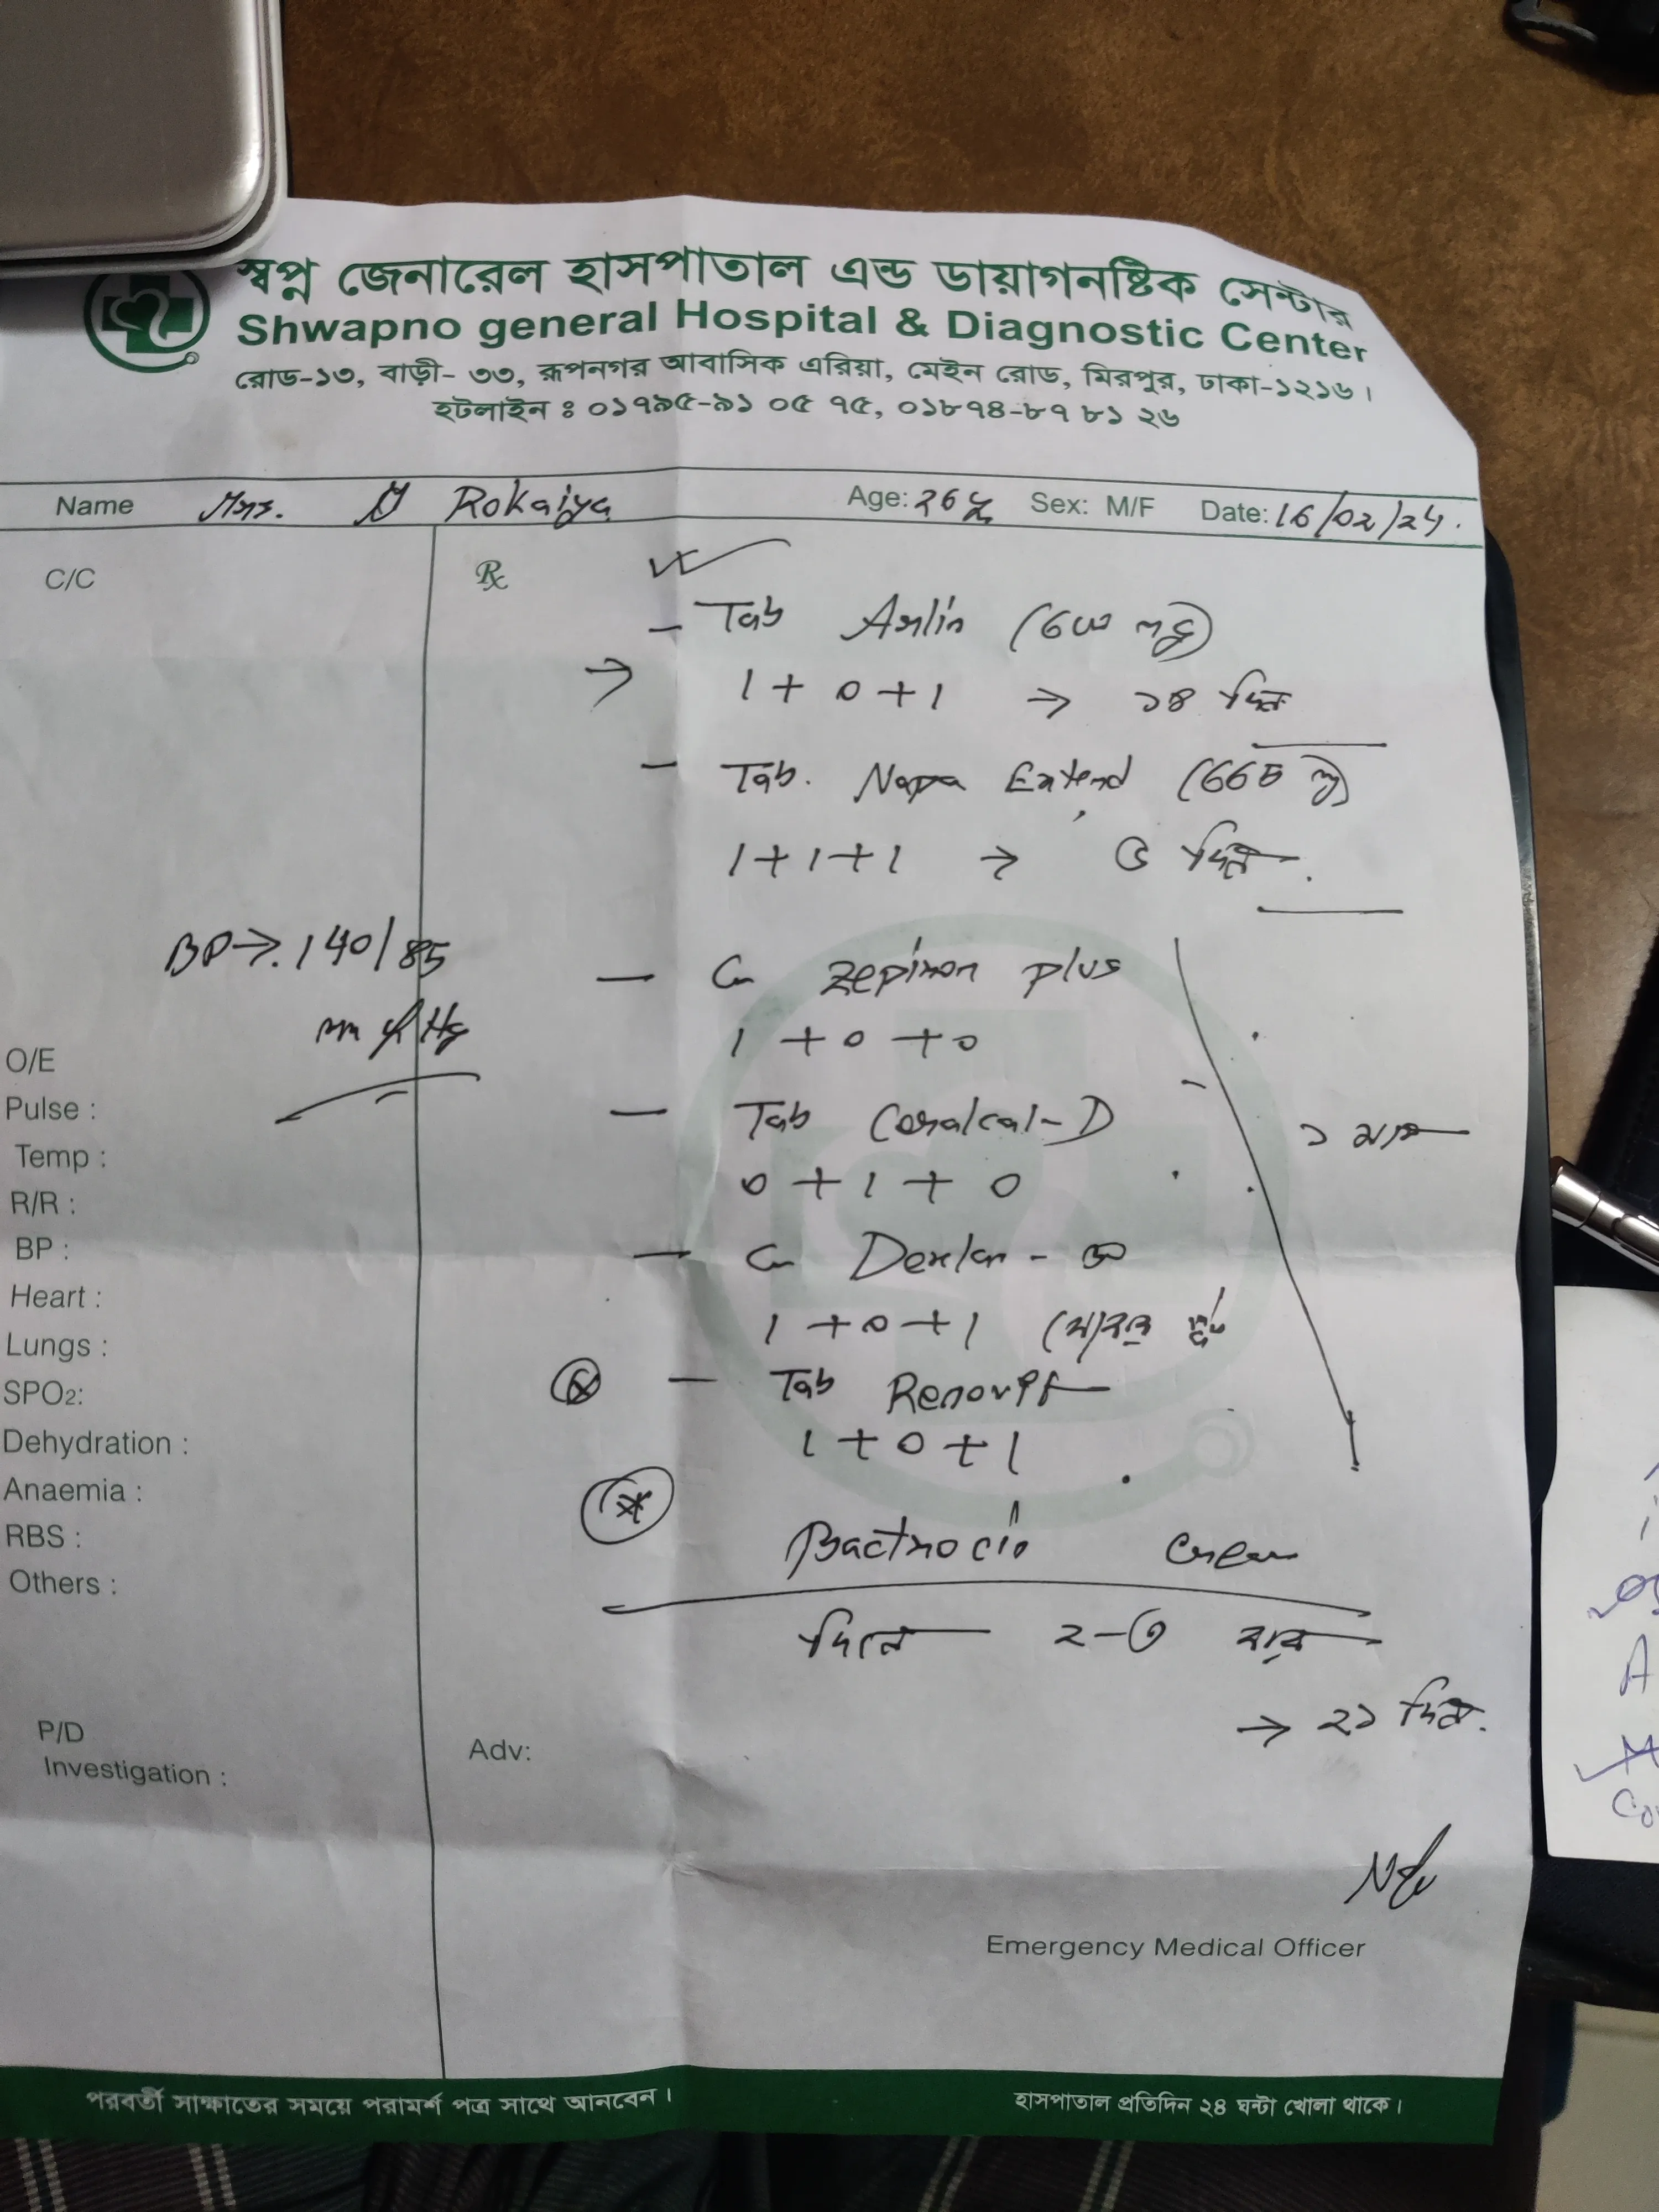 স্বপ্ন জেনারেল হাসপাতাল এন্ড ডায়াগনষ্টিক সেন্টার
Shwapno general Hospital & Diagnostic Center
রোড-১৩, বাড়ী- ৩৩, রূপনগর আবাসিক এরিয়া, মেইন রোড, মিরপুর, ঢাকা-১২১৬।
হটলাইন ঃ ০১৭৯৫-৯১ ০৫ ৭৫, ০১৮৭৪-৮৭ ৮১ ২৬
Name Mrs. Rokaiya Age: 26 y Sex: M/F Date: 16/02/24.
C/C
BP→. 140/85
mm of Hg
O/E
Pulse :
Temp :
R/R :
BP :
Heart :
Lungs :
SPO2:
Dehydration :
Anaemia :
RBS :
Others :
P/D
Investigation :
Rx
- Tab Arlin (600 mg)
→ 1 + 0 + 1 → ১৪ দিন
- Tab. Napa Extend (665 mg)
1 + 1 + 1 → ৫ দিন.
- plus
1 + 0 + 0
- Tab Coralcal-D
0 + 1 + 0
১ মাস
- Dexlan -
1 + 0 + 1
- Tab
1 + 0 + 1
Bactrocin Cream
দিনে ২-৩ বার
→ ২১ দিন.
Adv:
Emergency Medical Officer
পরবর্তী সাক্ষাতের সময়ে পরামর্শ পত্র সাথে আনবেন।
হাসপাতাল প্রতিদিন ২৪ ঘন্টা খোলা থাকে।